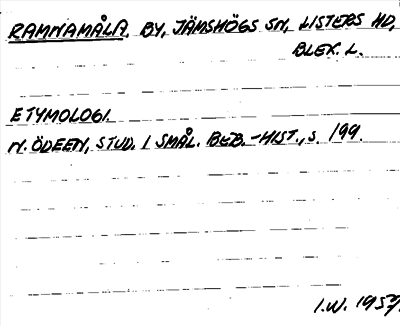 RAMNAMÅLA. BY, JÄMSHÖGS SN, LISTERS HD,
BLEK. L.
ETYMOLOGI.
N. ÖDEEN, STUD. I SMÅL. BEB.-HIST., S. 199.
I.W. 1957.